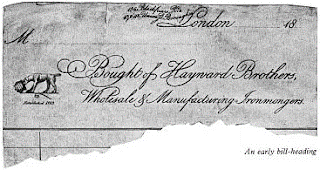 London 18
M
Bought of Hayward Brothers,
Wholesale & Manufacturing Ironmongers.
Established 1783
An early bill-heading